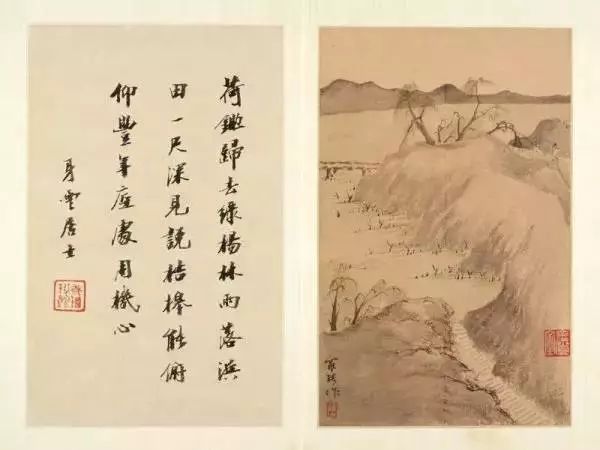 荷鋤歸去綠楊林雨落溪
田一尺深見說桔槔能俯
仰豐年底處用機心
身雲居士
羅聘作